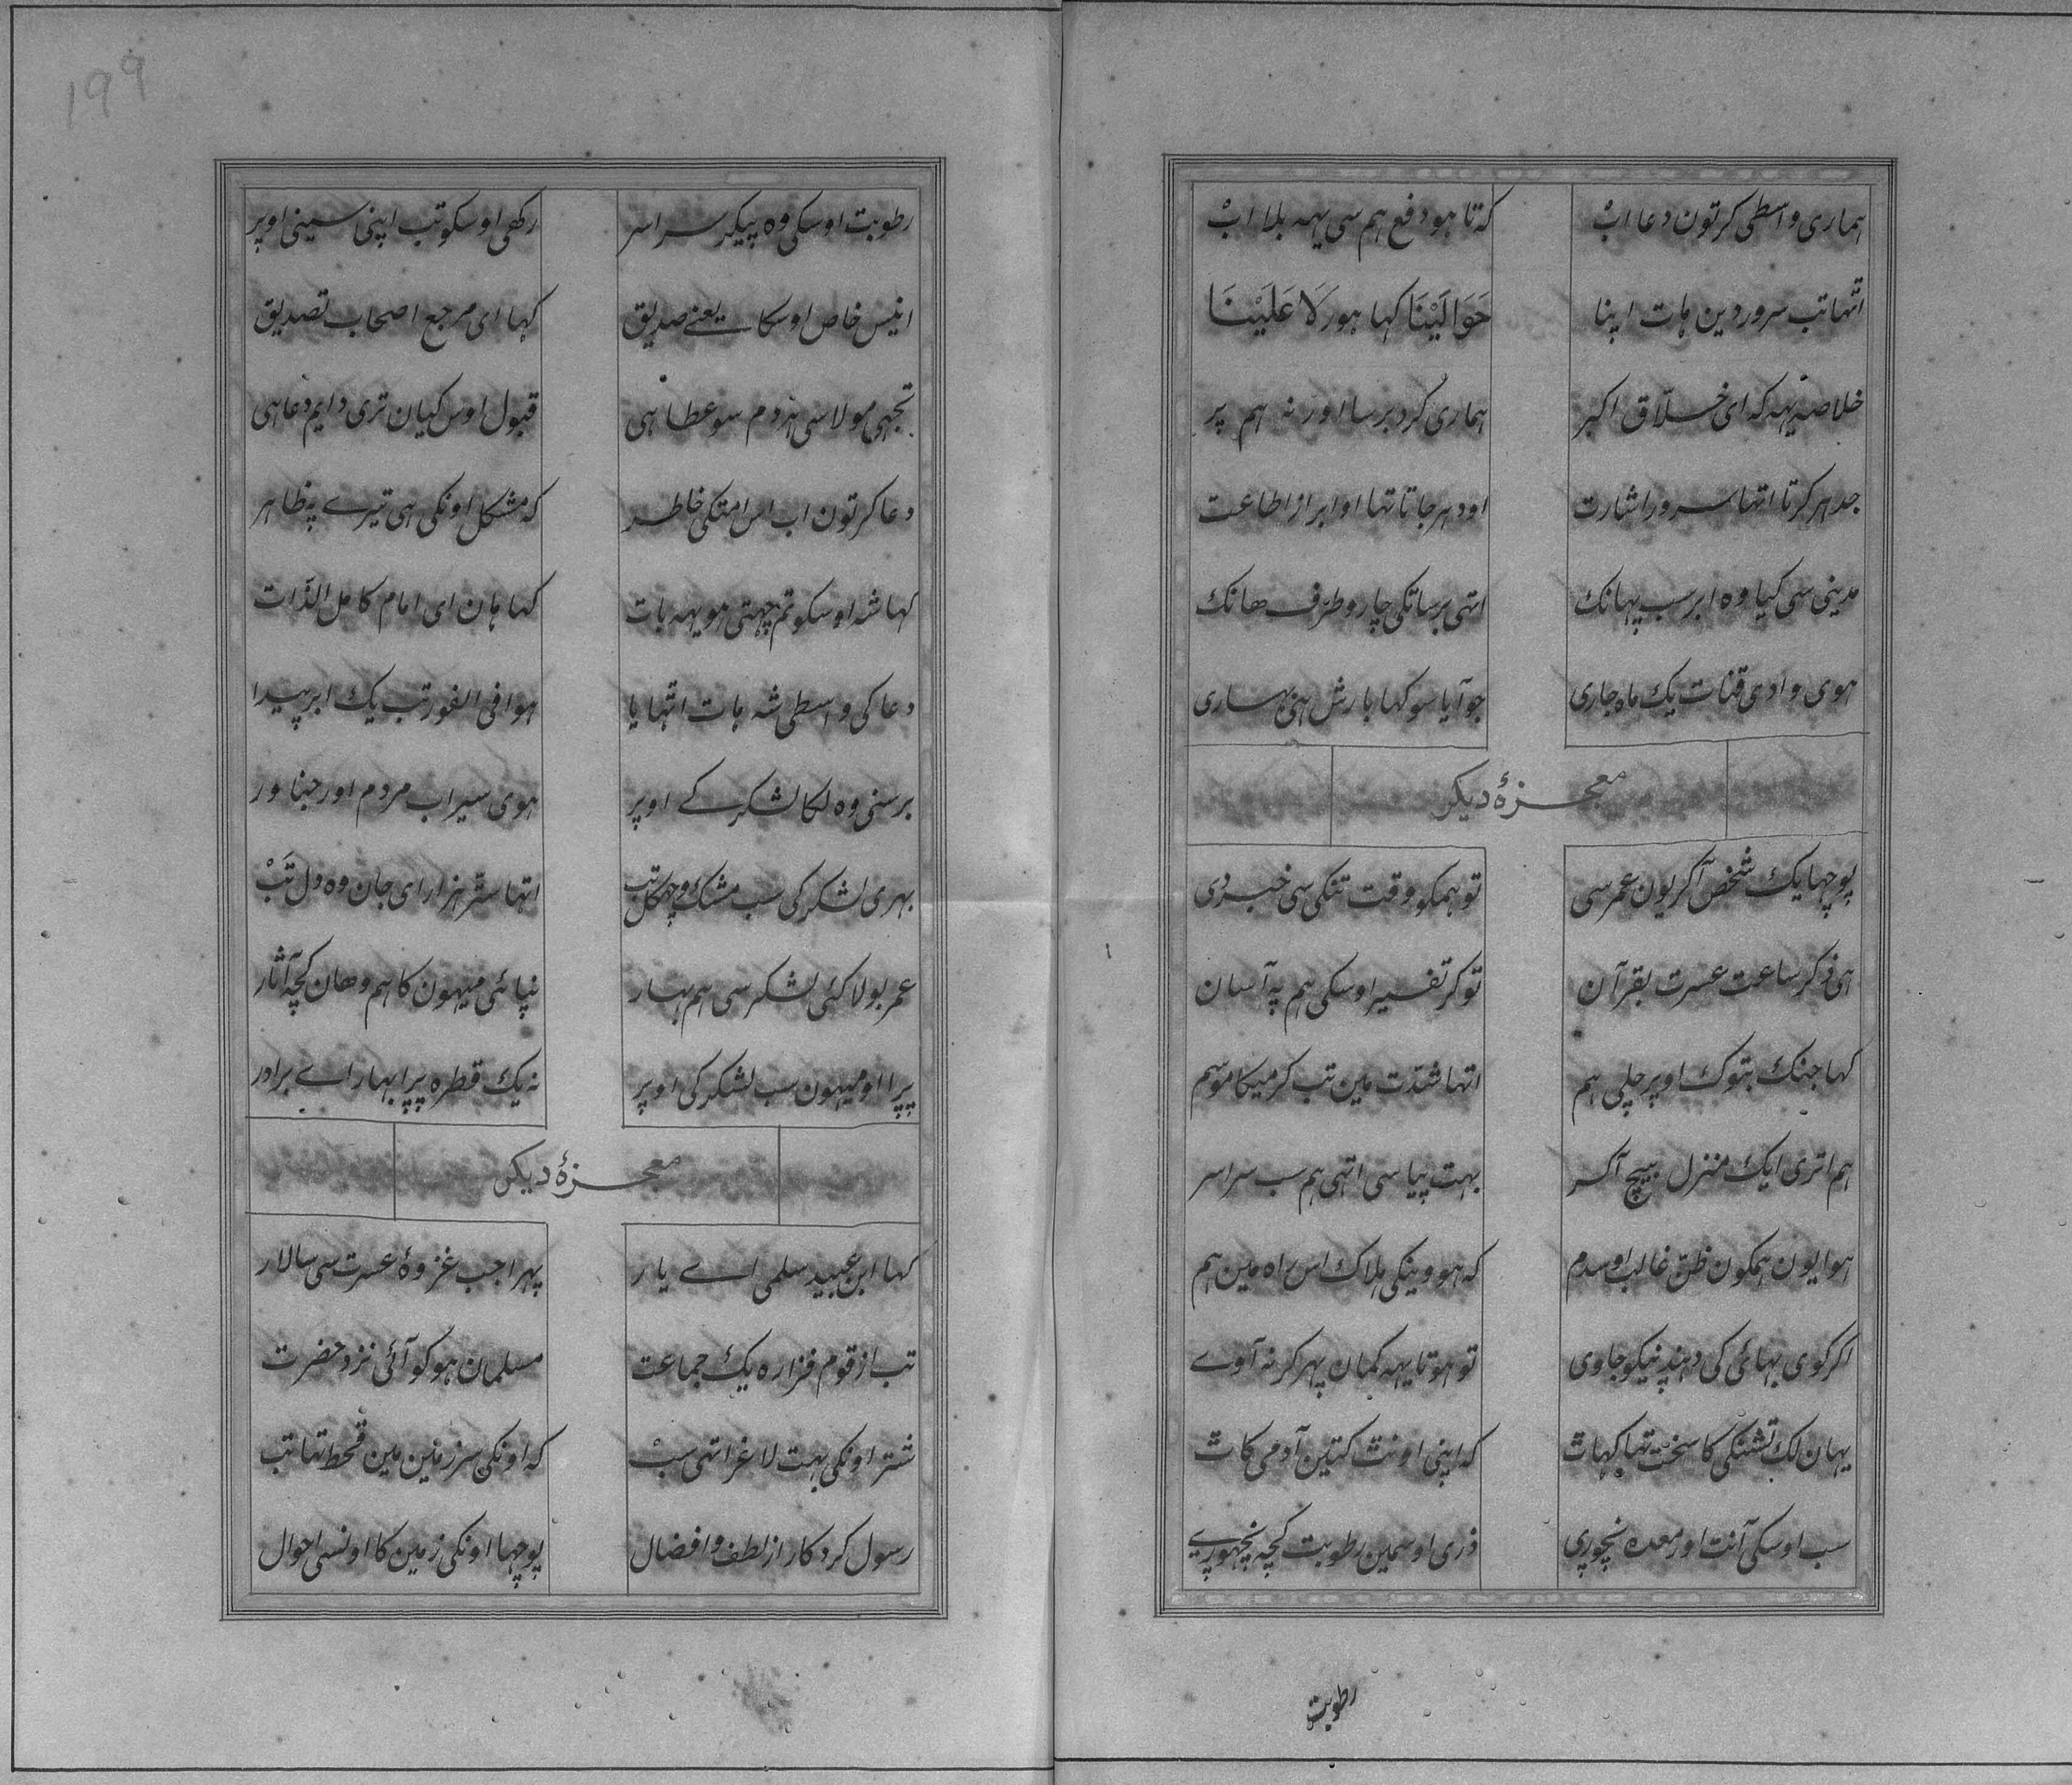 هماری واسطی کر تون دعا اب کہ تا هو دفع هم سی یہہ بلا اب
اتھا تب سرور دین هات اپنا حَوَالَیْنَا کہا هور لَا عَلَیْنَا
خلاصہ یہہ کہ ای خلاق اکبر هماری کرد برسا اور نہ هم پر
جدهر کرتا اتھا سرور اشارت اودهر جاتا تھا او ابر از اطاعت
مدینی سی کیا وہ ابر سب پهانک اتھی برساتکی چارو طرف هانک
هوی وادی قنات یک ماہ جاری جو آیا سو کہا بارش هی بهاری
معجزۂ دیکر
پوچها یک شخص آکر یون عمر سی تو همکو وقت تنکی سی خبر دی
هی ذکر ساعت عسرت بقرآن تو کر تفسیر اوسکی هم پہ آسان
کہا جنک بتوک اوپر چلی هم اتھا شدت مین تب کرمیکا موسم
هم اتری ایک منزل بیچ آکر بہت پیاسی اتھی هم سب سراسر
هوا یون همکون ظن غالب اوسدم کہ هووینکی هلاک اس راہ مین هم
اکر کوی بهائی کی دهندنیکو جاوی تو هوتا یہہ کمان پهر کر نہ آوے
یہان لک تشنکی کا سخت تھا کہات کہ اپنی اونت کتین آدمی کات
سب اوسکی آنت اور معدہ نچوری ذری اوسمین رطوبت کچہ نچهوری
رطوبت
۱۹۹
رطوبت اوسکی وہ پیکر سراسر رکھی اوسکو تب اپنی سینی اوپر
انیس خاص اوسکا یعنے صدیق کہا ای مرجع اصحاب تصدیق
تجهی مولا سی هردم سو عطا هی قبول اوس کیان تری دایم دعا هی
دعا کر تون اب اس امتکی خاطر کہ مشکل اونکی هی تیرے پہ ظاهر
کہا شہ اوسکو تم چہتی هو یہہ بات کہا هان ای امام کامل الذات
دعا کی واسطی شہ هات اتھایا هوا فی الفور تب یک ابر پیدا
برسنی وہ لکا لشکر کے اوپر هوی سیراب مردم اور جناور
بهری لشکر کی سب مشک و چهکل تب اتھا ستر هزار ای جان وہ دل تَبْ
عمر بولا کئی لشکر سی هم بهار نپائی میهون کا هم وهان کچہ آثار
پرا او میهون سب لشکر کی اوپر نہ یک قطرہ پرا بهار اے برادر
معجزۂ دیکر
کہا ابن عبید سلمی اے یار پهرا جب غزوۂ عسرت سی سالار
تب از قوم فزارہ یک جماعت مسلمان هو کو آئی نزد حضرت
شتر اونکی بہت لاغر اتھی سب کہ اونکی سرزمین مین قحط تھا تب
رسول کردکار از لطف و افضال پوچها اونکی زمین کا اونسی احوال